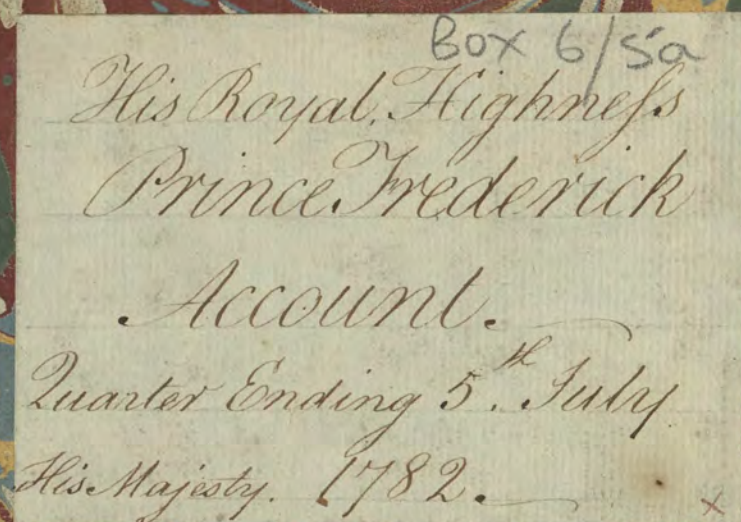 Box 6/5a
His Royal Highneſs
Prince Frederick
Account.
Quarter Ending 5.th July
His Majesty. 1782.
x